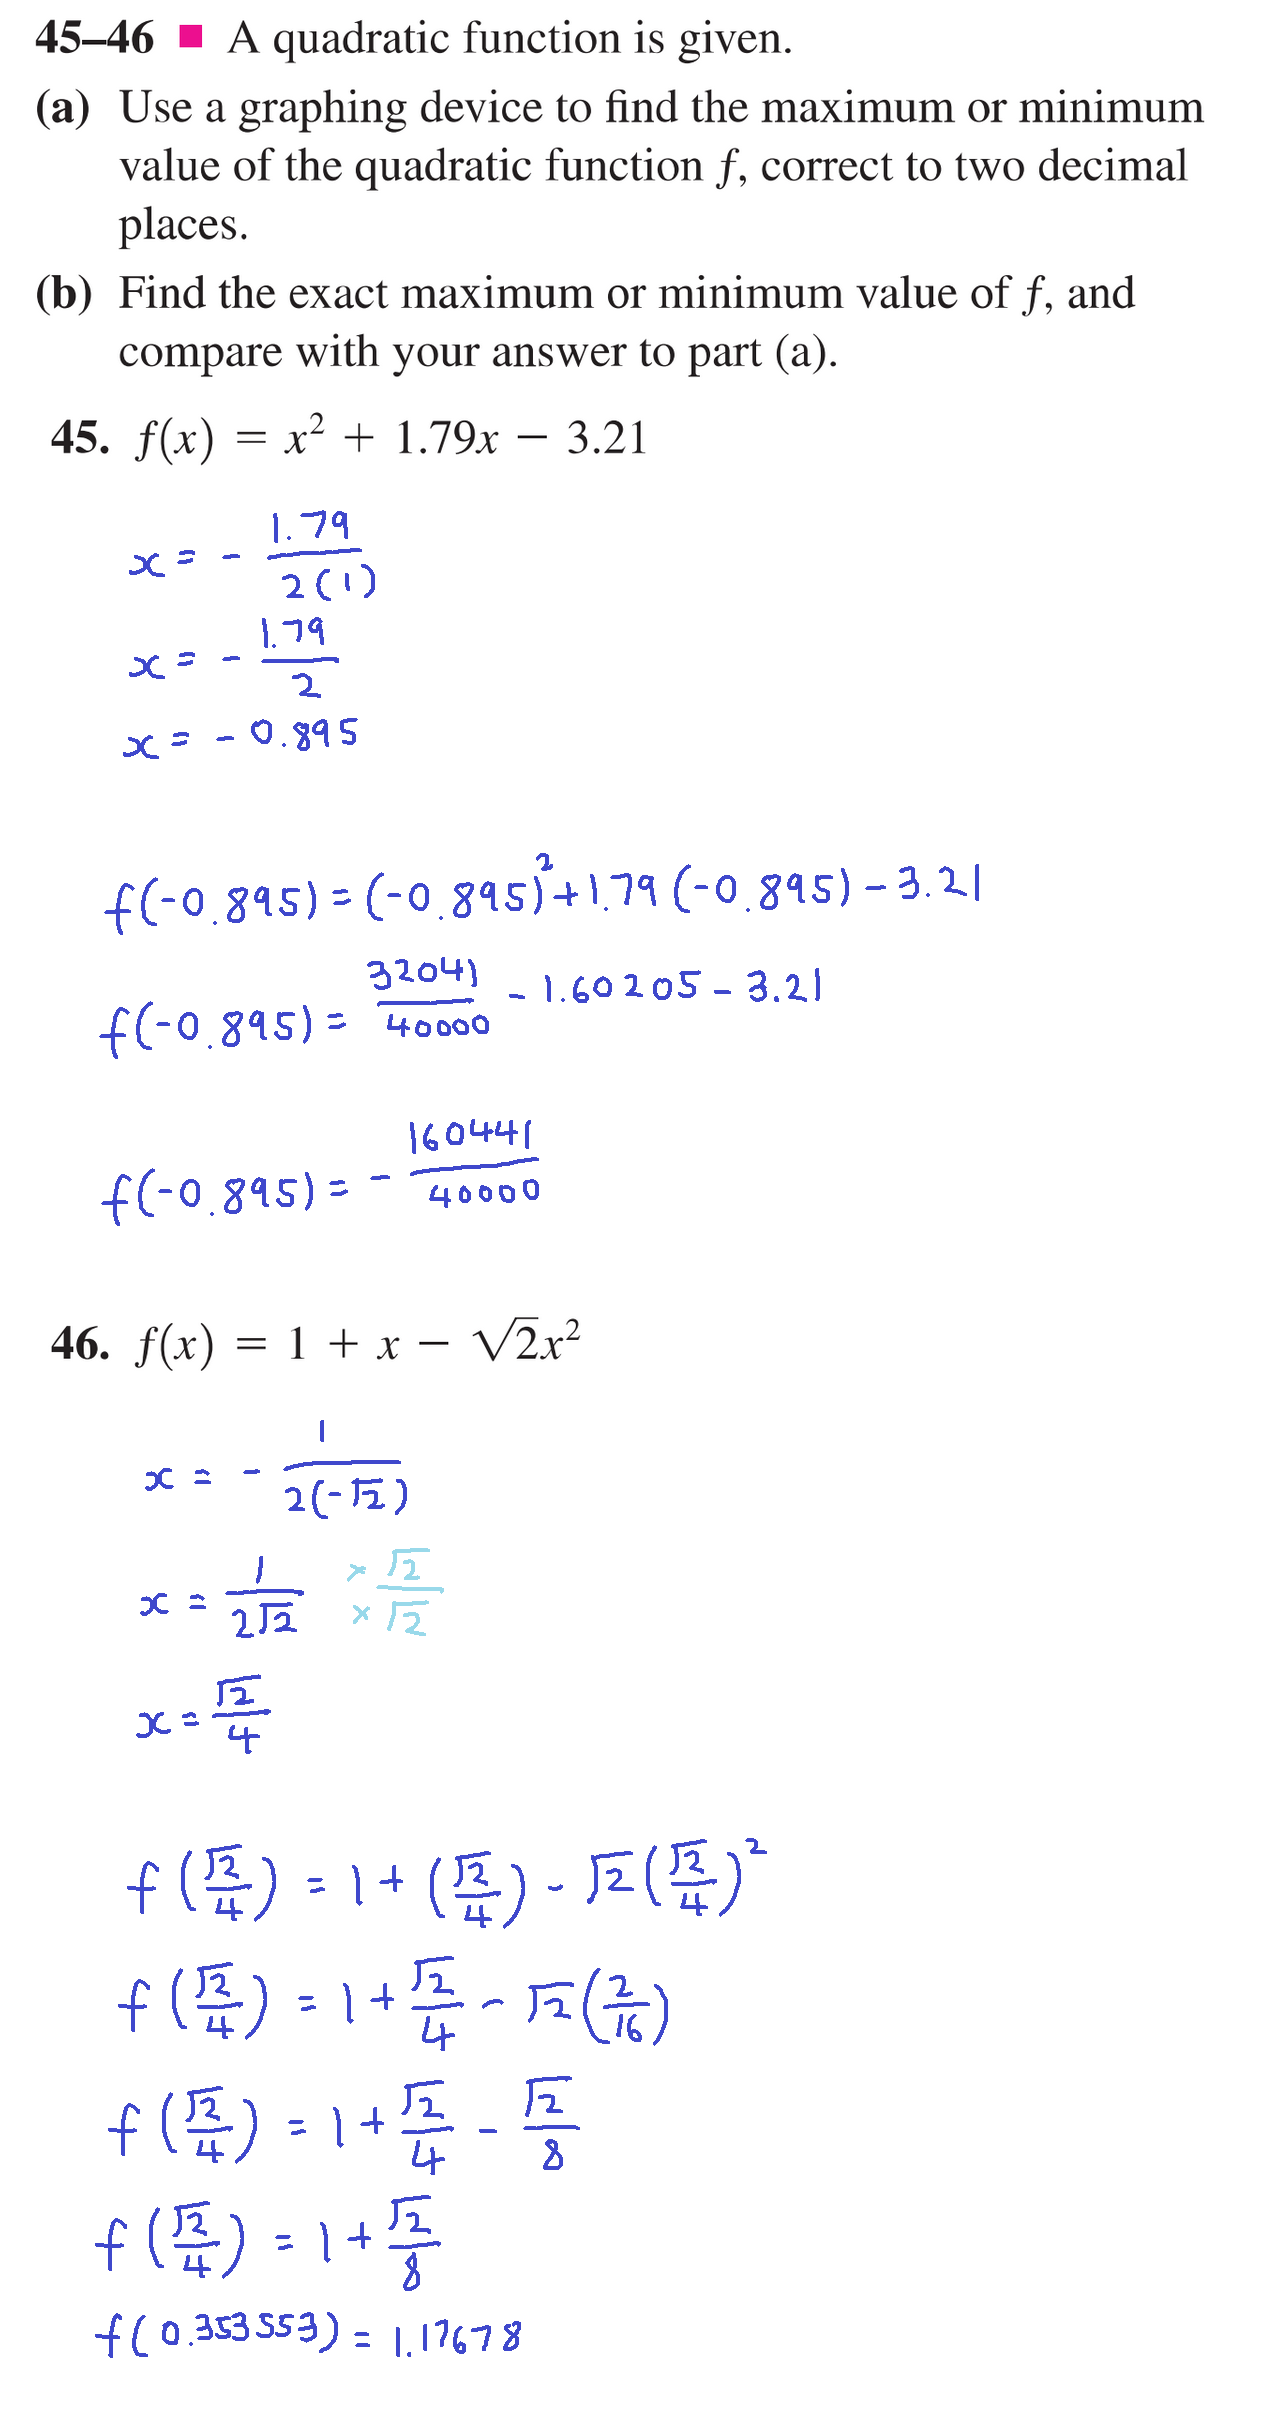 45–46 ■ A quadratic function is given.
(a) Use a graphing device to find the maximum or minimum
value of the quadratic function f, correct to two decimal
places.
(b) Find the exact maximum or minimum value of f, and
compare with your answer to part (a).
45. f(x) = x² + 1.79x − 3.21
x = - 1.79/2(1)
x = - 1.79/2
x = - 0.895
f(-0.895) = (-0.895)² + 1.79(-0.895) - 3.21
f(-0.895) = 32041/40000 - 1.60205 - 3.21
f(-0.895) = - 160441/40000
46. f(x) = 1 + x − √2x²
x = - 1/2(-√2)
x = 1/2√2 × √2/× √2
x = √2/4
f(√2/4) = 1 + (√2/4) - √2(√2/4)²
f(√2/4) = 1 + √2/4 - √2(2/16)
f(√2/4) = 1 + √2/4 - √2/8
f(√2/4) = 1 + √2/8
f(0.353553) = 1.17678